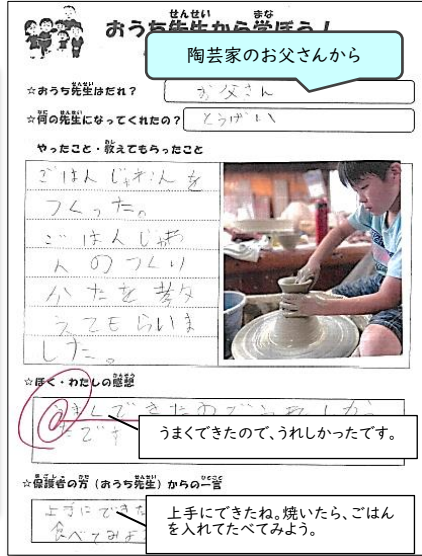 おうち先生から学ぼう！
陶芸家のお父さんから
☆おうち先生はだれ？
お父さん
☆何の先生になってくれたの？
とうげい
やったこと・教えてもらったこと
ごはんじゃわんを
つくった。
ごはんじゃわ
んのつくり
かたを教
えてもらいま
した。
☆ぼく・わたしの感想
うまくできたのでうれしかっ
たです
うまくできたので、うれしかったです。
☆保護者の方（おうち先生）からの一言
上手にできた
食べてみよ
上手にできたね。焼いたら、ごはん
を入れてたべてみよう。